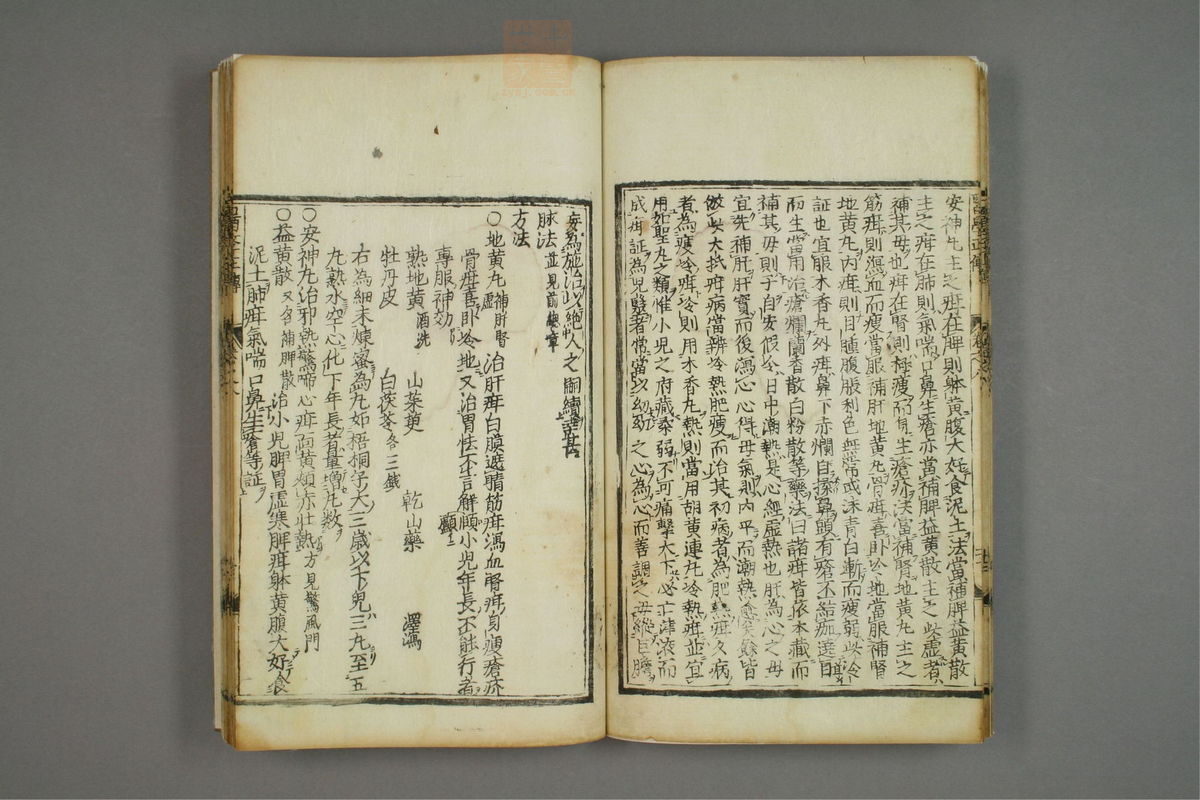 安神丸主之疳在脾則躰黄腹大好食泥土法當補脾益黄散
主之疳在肺則氣喘口鼻生瘡亦當補脾益黄散主之此虚者
補其母也疳在腎則極瘦而身生瘡疥法當補腎地黄丸主之
筋疳則瀉血而瘦當服補肝地黄丸骨疳喜卧冷地當服補腎
地黄丸内疳則目腫腹脹利色無常或沫青白漸而瘦弱此冷
証也宜服木香丸外疳鼻下赤爛自揉鼻頭有瘡不結痂遶目
而生當用治瘡爛蘭香散白粉散等藥法曰諸疳皆依本藏而
補其母則子自安假令日中潮熱是心經虚熱也肝為心之母
宜先補肝肝實而後瀉心心得母氣則内平而潮熱愈矣餘皆
倣此大抵疳病當辨冷熱肥瘦而治其初病者為肥熱疳久病
者為瘦冷疳冷則用木香丸熱則當用胡黄連丸冷熱疳並宜
用如聖丸之類惟小児之府藏柔弱不可痛擊大下必亡津液而
成疳証為児醫者常當以幼幼之心為心而善調之毋縱巨膽
妄為施治以絶人之嗣續
脉法 並見前總章
方法
〇地黄丸 補肝腎虚 治肝疳白膜遮睛筋疳瀉血腎疳身瘦瘡疥
骨疳喜卧冷地又治胃怯不言解顱小児年長不能行者
專服神効
熟地黄 酒洗 山茱萸 乾山藥 澤瀉
牡丹皮 白茯苓各三錢
右為細末煉蜜為丸如梧桐子大三歳以下兒三丸至五
九熱水空心化下年長者量増丸数
〇安神丸治邪熱驚啼心疳面黄頰赤壯熱 方見驚風門
〇益黄散 又名補脾散 治小児脾胃虚寒脾疳躰黄腹大好食
泥土肺疳氣喘口鼻生瘡等証